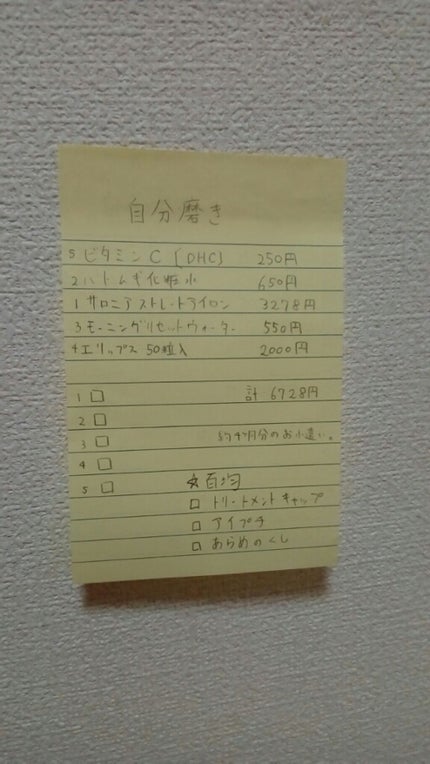 自分磨き
5 ビタミンC [DHC] 250円
2 ハトムギ化粧水 650円
1 サロニアストレートアイロン 3278円
3 モーニングリセットウォーター 550円
4 エリップス 50粒入 2000円
1 □ 計 6728円
2 □
3 □ 約4ヶ月分のお小遣い。
4 □
5 □ ☆百均
□ トリートメントキャップ
□ アイプチ
□ あらめのくし